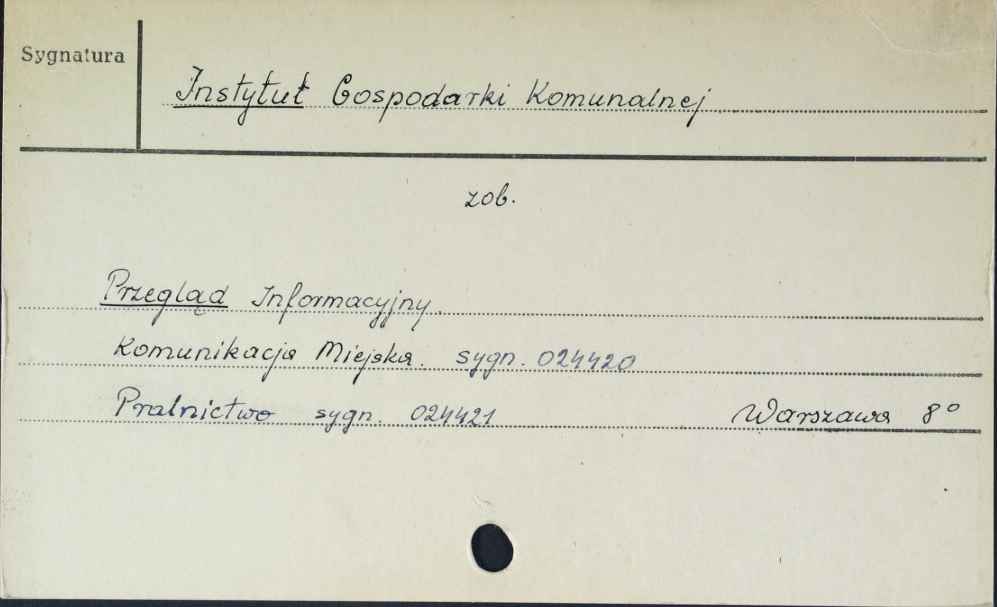 Sygnatura
Instytut Gospodarki Komunalnej
zob.
Przegląd Informacyjny.
Komunikacja Miejska. sygn. 024420
Pralnictwo sygn. 024421 Warszawa 8°